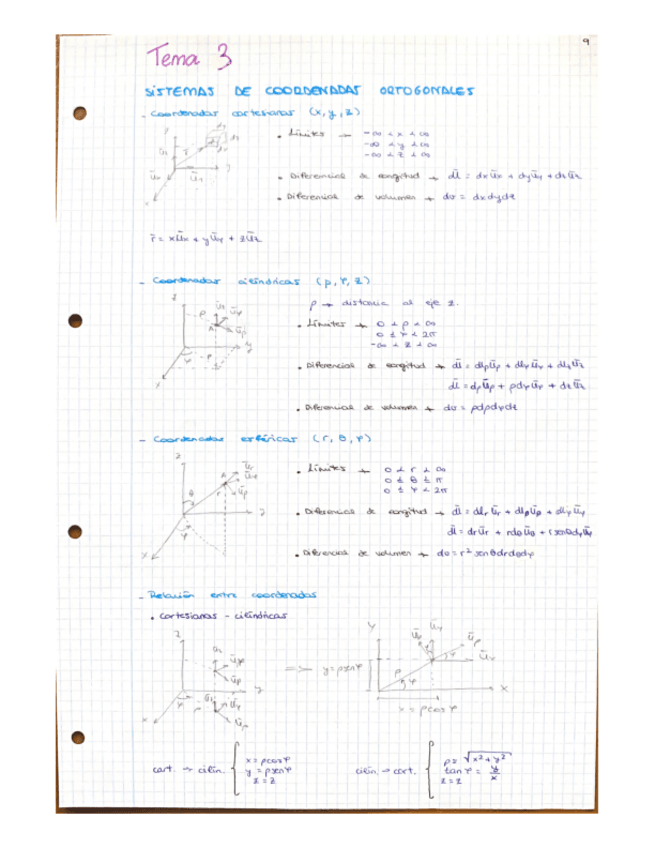 9
Tema 3
SISTEMAS DE COORDENADAS ORTOGONALES
- Coordenadas cartesianas (x, y, z)
• Límites → -∞ < x < ∞
-∞ < y < ∞
-∞ < z < ∞
• Diferencial de longitud → dl̄ = dxūx + dyūy + dzūz
• Diferencial de volumen → dv = dxdydz
r̄ = xūx + yūy + zūz
- Coordenadas cilíndricas (ρ, φ, z)
ρ → distancia al eje z.
• Límites → 0 < ρ < ∞
0 ≤ φ < 2π
-∞ < z < ∞
• Diferencial de longitud → dl̄ = dlρūρ + dlφūφ + dlzūz
dl̄ = dρūρ + ρdφūφ + dzūz
• Diferencial de volumen → dv = ρdρdφdz
- Coordenadas esféricas (r, θ, φ)
• Límites → 0 < r < ∞
0 ≤ θ ≤ π
0 ≤ φ < 2π
• Diferencial de longitud → dl̄ = dlrūr + dlθūθ + dlφūφ
dl̄ = drūr + rdθūθ + rsenθdφūφ
• Diferencial de volumen → dv = r² senθdrdθdφ
- Relación entre coordenadas
• Cartesianas - cilíndricas
=> y = ρsenφ
x = ρcosφ
cart. → cilín. { x = ρcosφ
y = ρsenφ
z = z
cilín. → cart. { ρ = √x² + y²
tanφ = y/x
z = z